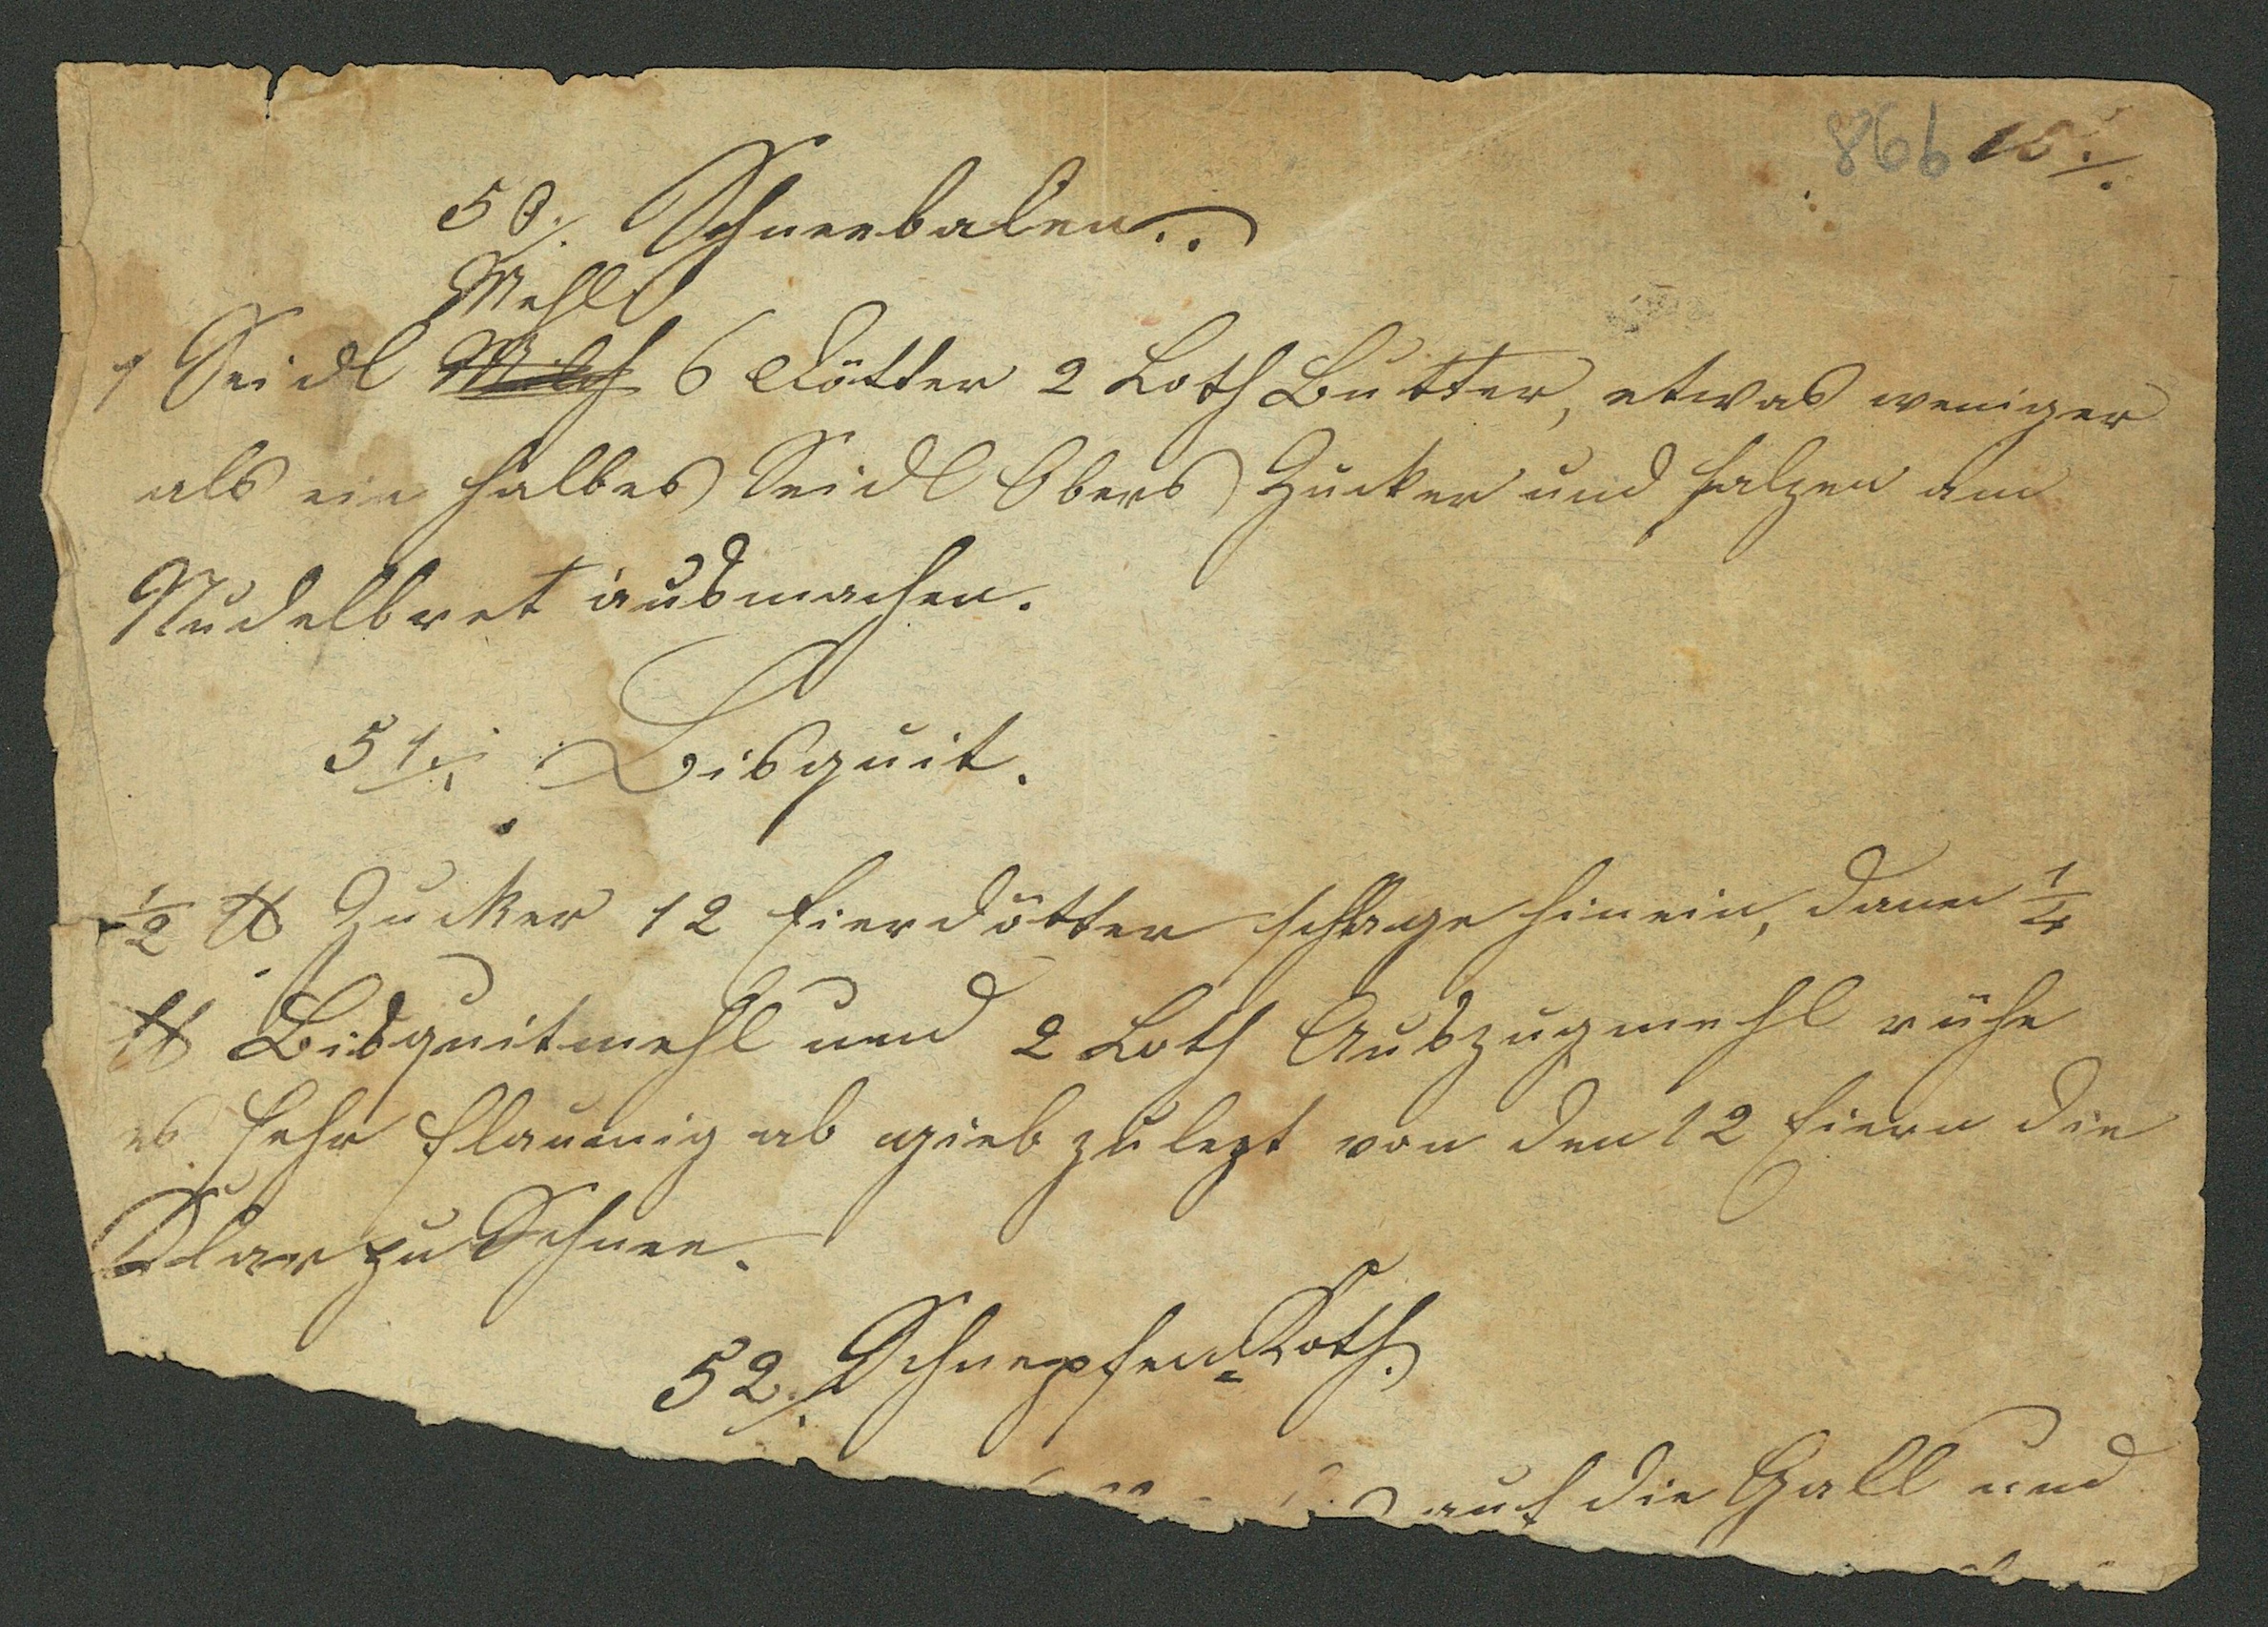 866 10./.
50./. Schneebalen..
Mehl
1 Seidl Milch 6 Dötter 2 Loth Butter, etwas weniger
als ein halbes Seidl Obers Zucker und salzen am
Nudelbret ausmachen.
51./. Bisquit.
½ ℔ Zucker 12 Eierdötter schlage hinein, dann ¼
℔ Bisquitmehl und 2 Loth Auszugmehl rühe
es sehr flaumig ab gieb zulezt von den 12 Eiern die
Klar zu Schnee.
52./. Schnepfen-Koth.
auf die Gall und